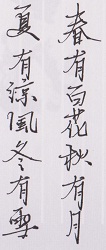 春有百花秋有月
夏有凉風冬有雪